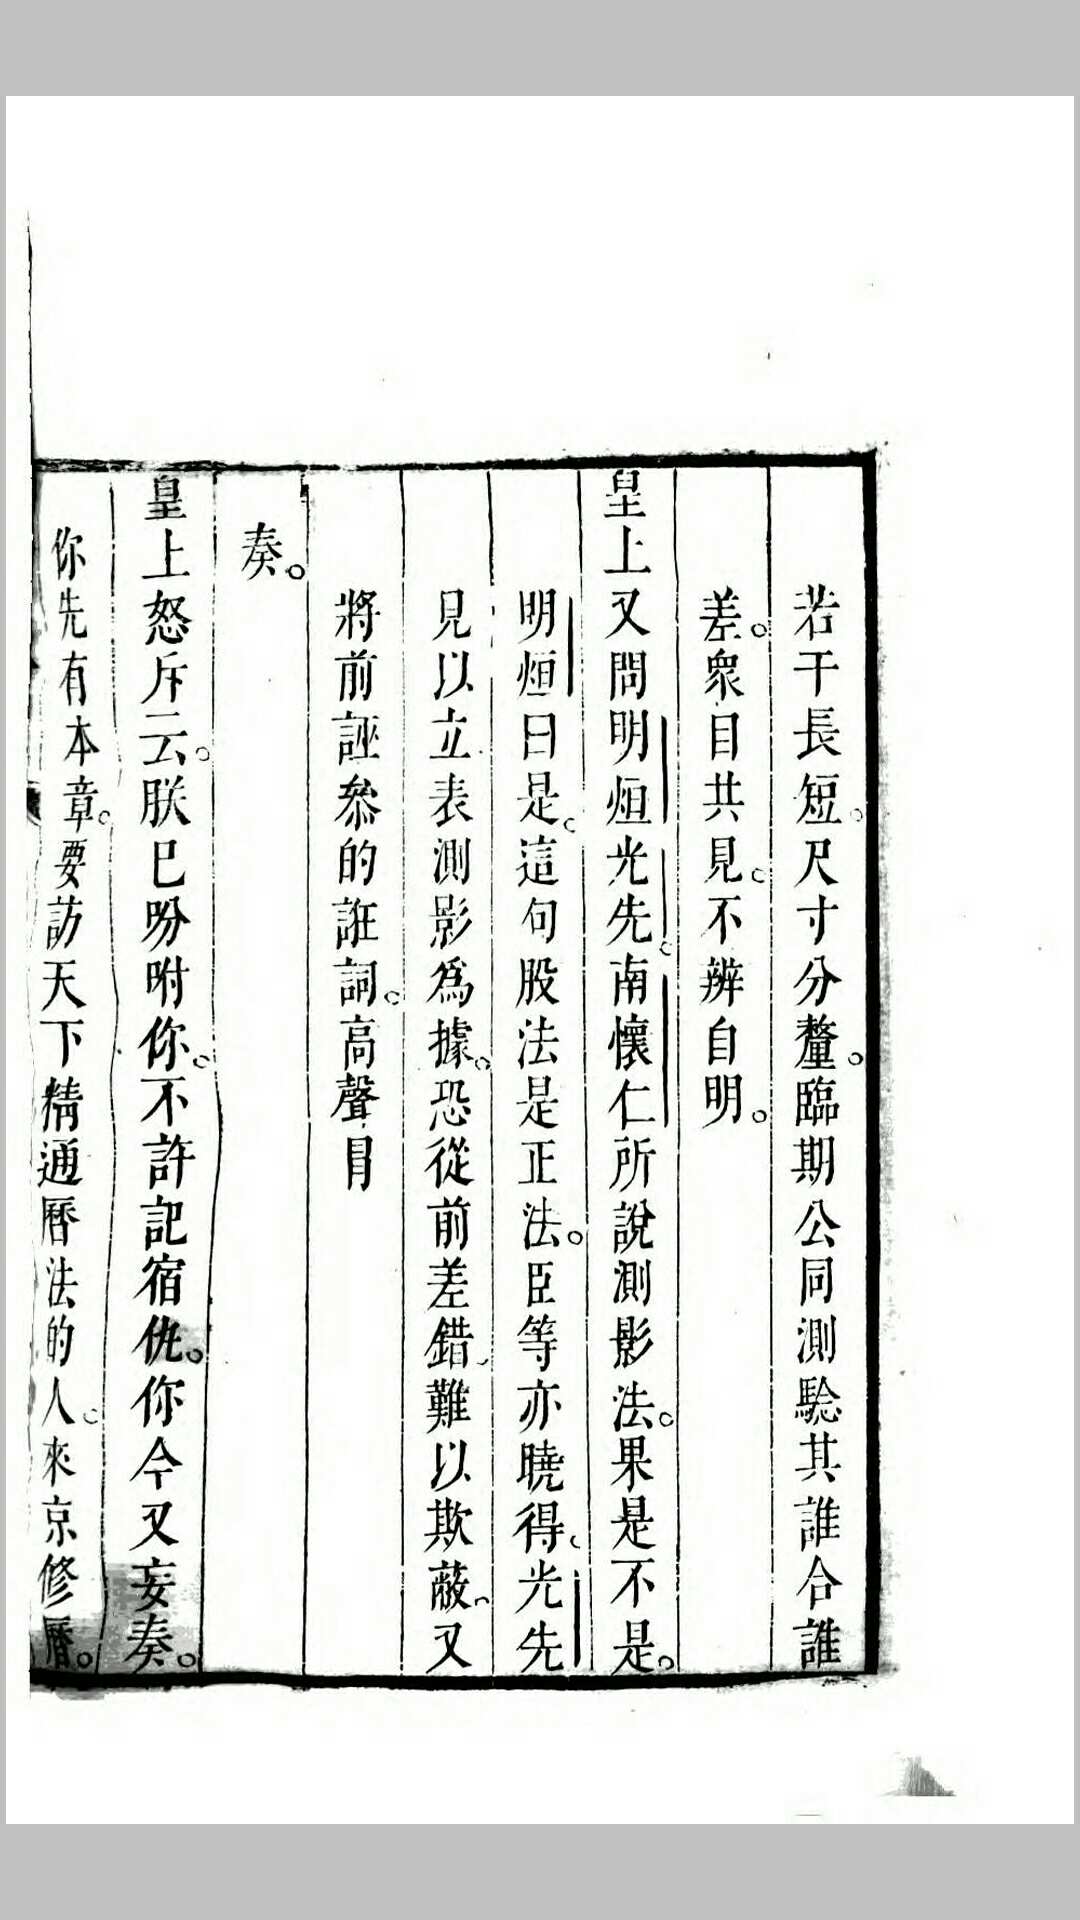 若干長短。尺寸分釐。臨期公同測騐其誰合誰
差。衆目共見。不辨自明。
皇上又問明烜光先。南懷仁所說測影法。果是不是。
明烜曰是。這句股法是正法。臣等亦曉得。光先
見以立表測影爲據。恐從前差錯。難以欺蔽。又
將前誣叅的誑詞。高聲冒
奏。
皇上怒斥云。朕已吩咐你。不許記宿仇。你今又妄奏。
你先有本章。要訪天下精通曆法的人。來京修曆。